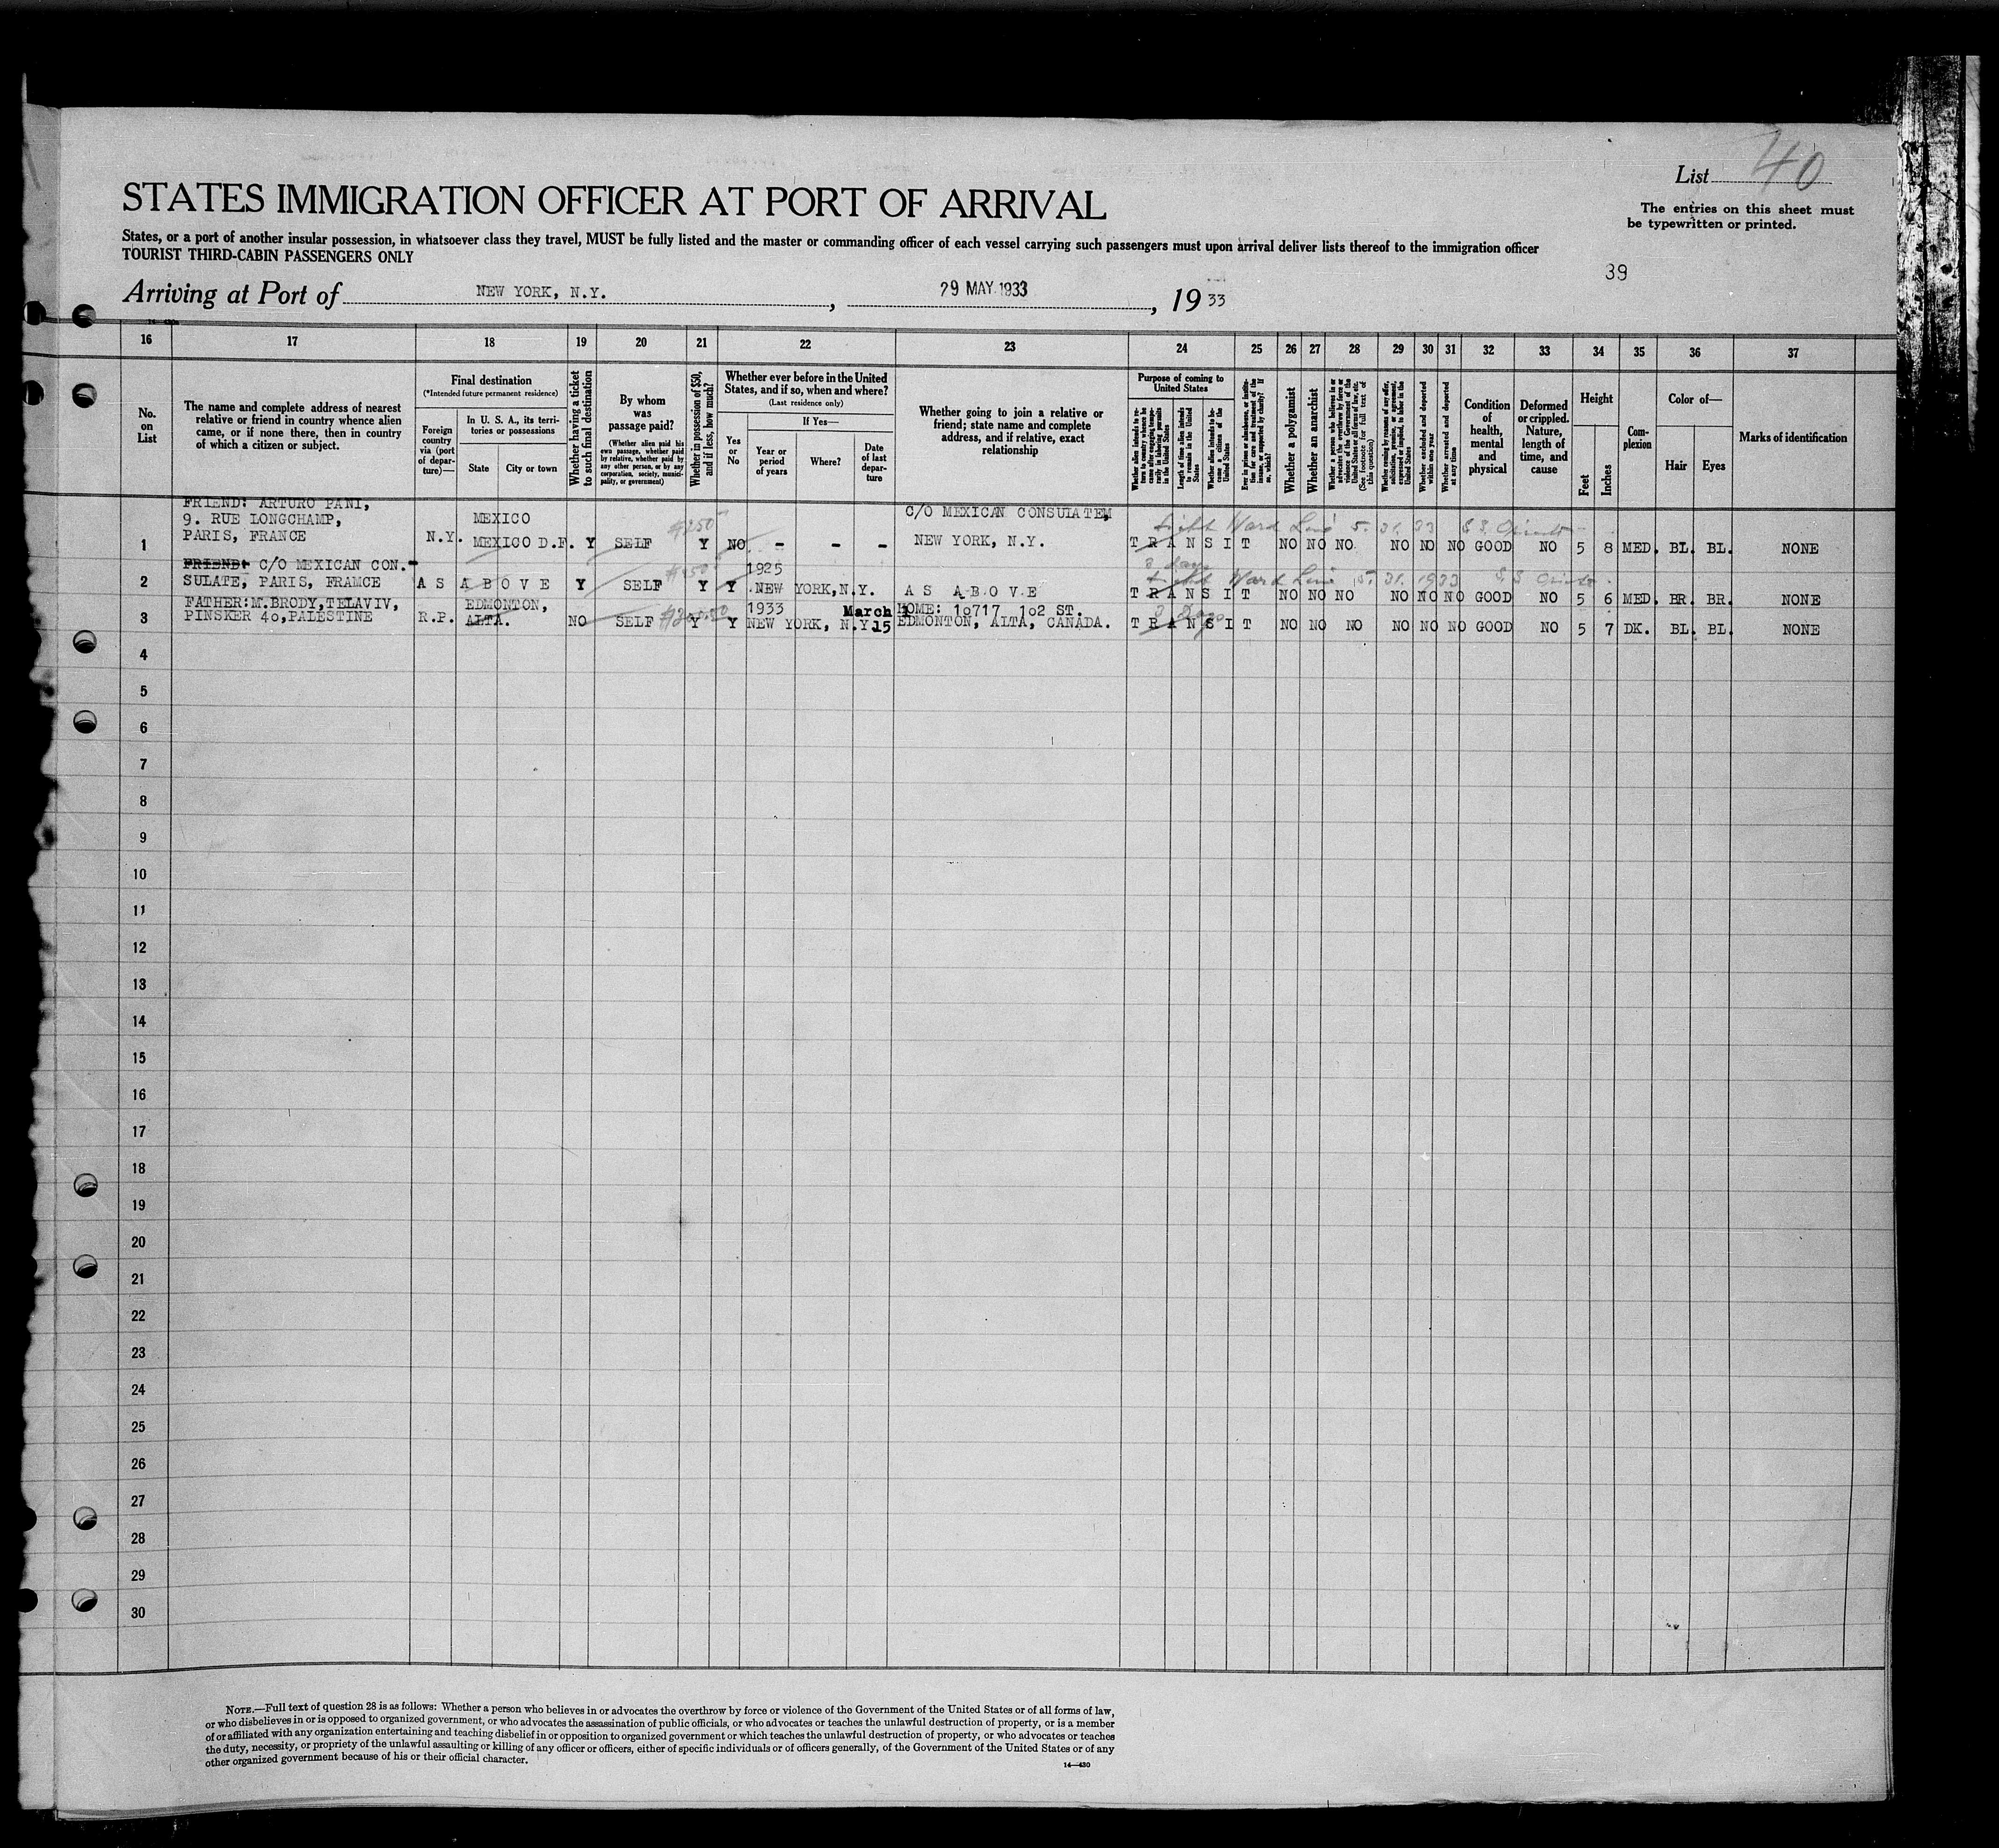 List 40
STATES IMMIGRATION OFFICER AT PORT OF ARRIVAL
The entries on this sheet must
be typewritten or printed.
States, or a port of another insular possession, in whatsoever class they travel, MUST be fully listed and the master or commanding officer of each vessel carrying such passengers must upon arrival deliver lists thereof to the immigration officer
TOURIST THIRD-CABIN PASSENGERS ONLY
39
Arriving at Port of NEW YORK, N.Y. , 29 MAY 1933 , 19 33
16 17 18 19 20 21 22 23 24 25 26 27 28 29 30 31 32 33 34 35 36 37
No. on List
The name and complete address of nearest
relative or friend in country whence alien
came, or if none there, then in country
of which a citizen or subject.
Final destination
(*Intended future permanent residence)
Foreign
country
via (port
of depar-
ture)—
In U. S. A., its terri-
tories or possessions
State City or town
Whether having a ticket
to such final destination
By whom
was
passage paid?
(Whether alien paid his
own passage, whether paid
by relative, whether paid by
any other person, or by any
corporation, society, munici-
pality, or government)
Whether in possession of $50,
and if less, how much?
Whether ever before in the United
States, and if so, when and where?
(Last residence only)
Yes
or
No
If Yes—
Year or
period
of years
Where?
Date
of last
depar-
ture
Whether going to join a relative or
friend; state name and complete
address, and if relative, exact
relationship
Purpose of coming to
United States
Length of time alien intends
to remain in the United
States
Whether alien intends to be-
come a citizen of the
United States
Whether a polygamist
Whether an anarchist
(See footnote for full text of
this question)
Whether excluded and deported
within one year
Whether arrested and deported
at any time
Condition
of
health,
mental
and
physical
Deformed
or crippled.
Nature,
length of
time, and
cause
Height
Feet
Inches
Com-
plexion
Color of—
Hair Eyes
Marks of identification
FRIEND: ARTURO PANI,
9. RUE LONGCHAMP,
PARIS, FRANCE
1 N.Y. MEXICO MEXICO D.F. Y SELF $250 Y NO - - - C/O MEXICAN CONSULATE, NEW YORK, N.Y. TRANSIT NO NO NO NO NO NO GOOD NO 5 8 MED. BL. BL. NONE
Ward Line 5. 31. 33 S.S.
3 days
FRIEND: C/O MEXICAN CON.-
SULATE, PARIS, FRAMCE
2 AS ABOVE Y SELF Y Y 1925 NEW YORK, N.Y. AS ABOVE TRANSIT NO NO NO NO NO NO GOOD NO 5 6 MED. BR. BR. NONE
Ward Line 5. 31. 1933 S.S.
3 Days
FATHER: M. BRODY, TELAVIV,
PINSKER 40, PALESTINE
3 R.P. EDMONTON, ALTA. NO SELF Y Y 1933 NEW YORK, N.Y. March 15 HOME: 10717 102 ST. EDMONTON, ALTA, CANADA. TRANSIT NO NO NO NO NO NO GOOD NO 5 7 DK. BL. BL. NONE
4
5
6
7
8
9
10
11
12
13
14
15
16
17
18
19
20
21
22
23
24
25
26
27
28
29
30
NOTE.—Full text of question 28 is as follows: Whether a person who believes in or advocates the overthrow by force or violence of the Government of the United States or of all forms of law,
or who disbelieves in or is opposed to organized government, or who advocates the assassination of public officials, or who advocates or teaches the unlawful destruction of property, or is a member
of or affiliated with any organization entertaining and teaching disbelief in or opposition to organized government or which teaches the unlawful destruction of property, or who advocates or teaches
the duty, necessity, or propriety of the unlawful assaulting or killing of any officer or officers, either of specific individuals or of officers generally, of the Government of the United States or of any
other organized government because of his or their official character.
14—430